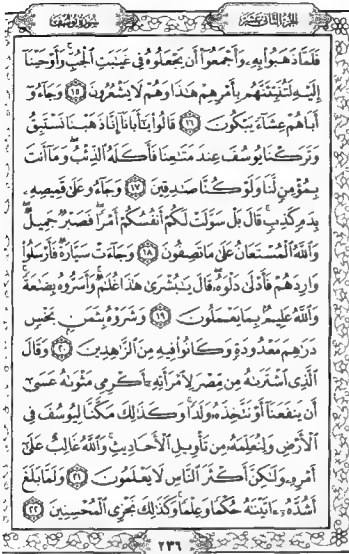 الجزء الثاني عشر
سورة يوسف
فَلَمَّا ذَهَبُوا۟ بِهِۦ وَأَجْمَعُوٓا۟ أَن يَجْعَلُوهُ فِى غَيَٰبَتِ ٱلْجُبِّ ۚ وَأَوْحَيْنَآ
إِلَيْهِ لَتُنَبِّئَنَّهُم بِأَمْرِهِمْ هَٰذَا وَهُمْ لَا يَشْعُرُونَ ١٥ وَجَآءُوٓ
أَبَاهُمْ عِشَآءً يَبْكُونَ ١٦ قَالُوا۟ يَٰٓأَبَانَآ إِنَّا ذَهَبْنَا نَسْتَبِقُ
وَتَرَكْنَا يُوسُفَ عِندَ مَتَٰعِنَا فَأَكَلَهُ ٱلذِّئْبُ ۖ وَمَآ أَنتَ
بِمُؤْمِنٍ لَّنَا وَلَوْ كُنَّا صَٰدِقِينَ ١٧ وَجَآءُو عَلَىٰ قَمِيصِهِۦ
بِدَمٍ كَذِبٍ ۚ قَالَ بَلْ سَوَّلَتْ لَكُمْ أَنفُسُكُمْ أَمْرًا ۖ فَصَبْرٌ جَمِيلٌ ۖ
وَٱللَّهُ ٱلْمُسْتَعَانُ عَلَىٰ مَا تَصِفُونَ ١٨ وَجَآءَتْ سَيَّارَةٌ فَأَرْسَلُوا۟
وَارِدَهُمْ فَأَدْلَىٰ دَلْوَهُۥ ۖ قَالَ يَٰبُشْرَىٰ هَٰذَا غُلَٰمٌ ۚ وَأَسَرُّوهُ بِضَٰعَةً ۚ
وَٱللَّهُ عَلِيمٌۢ بِمَا يَعْمَلُونَ ١٩ وَشَرَوْهُ بِثَمَنٍۭ بَخْسٍ
دَرَٰهِمَ مَعْدُودَةٍ وَكَانُوا۟ فِيهِ مِنَ ٱلزَّٰهِدِينَ ٢٠ وَقَالَ
ٱلَّذِى ٱشْتَرَىٰهُ مِن مِّصْرَ لِٱمْرَأَتِهِۦٓ أَكْرِمِى مَثْوَىٰهُ عَسَىٰٓ
أَن يَنفَعَنَآ أَوْ نَتَّخِذَهُۥ وَلَدًا ۚ وَكَذَٰلِكَ مَكَّنَّا لِيُوسُفَ فِى
ٱلْأَرْضِ وَلِنُعَلِّمَهُۥ مِن تَأْوِيلِ ٱلْأَحَادِيثِ ۚ وَٱللَّهُ غَالِبٌ عَلَىٰٓ
أَمْرِهِۦ وَلَٰكِنَّ أَكْثَرَ ٱلنَّاسِ لَا يَعْلَمُونَ ٢١ وَلَمَّا بَلَغَ
أَشُدَّهُۥٓ ءَاتَيْنَٰهُ حُكْمًا وَعِلْمًا ۚ وَكَذَٰلِكَ نَجْزِى ٱلْمُحْسِنِينَ ٢٢
٢٣٦